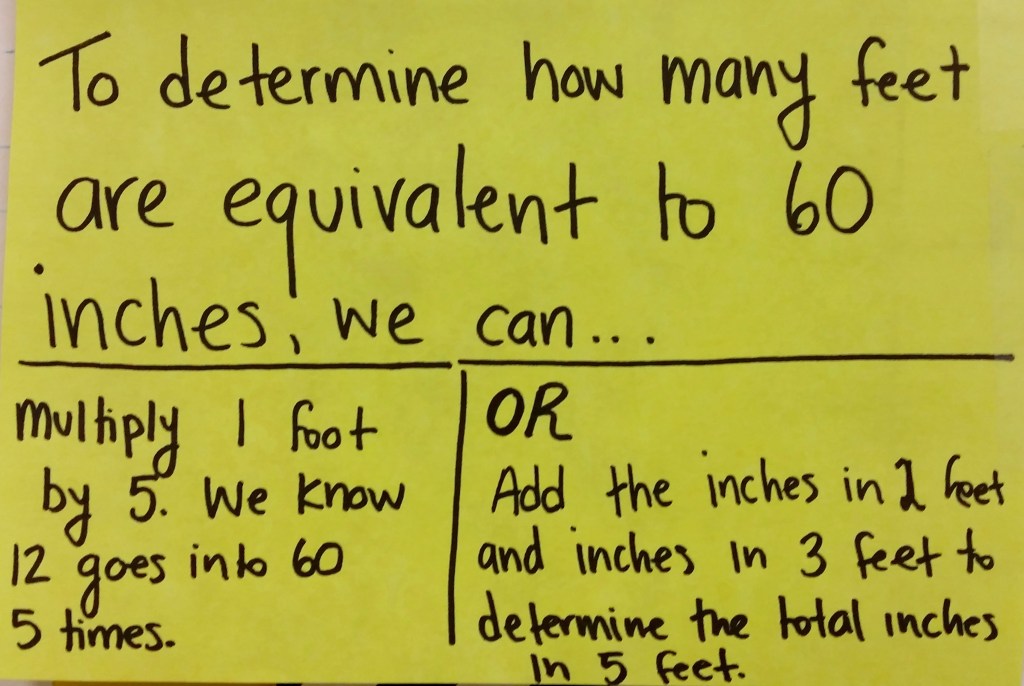 To determine how many feet
are equivalent to 60
inches, we can...
multiply 1 foot
by 5. We know
12 goes into 60
5 times.
OR
Add the inches in 2 feet
and inches in 3 feet to
determine the total inches
in 5 feet.